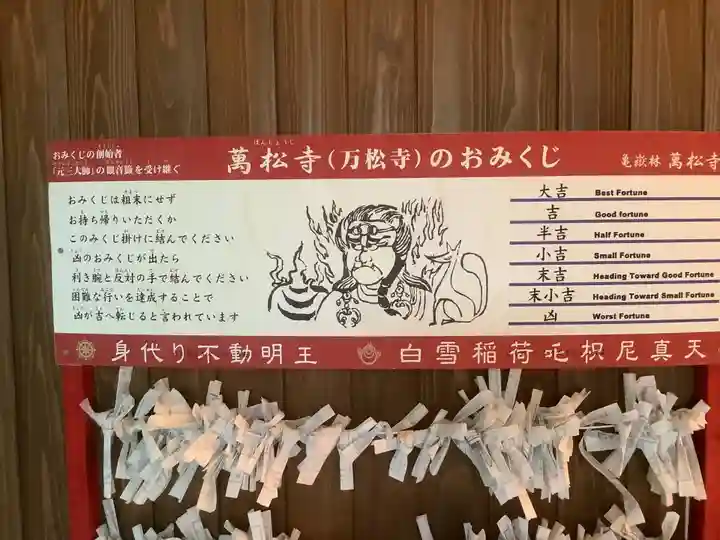 おみくじの創始者
「元三大師」の観音籤を受け継ぐ
ばんしょうじ
萬松寺(万松寺)のおみくじ
亀嶽林 萬松寺
おみくじは粗末にせず
お持ち帰りいただくか
このみくじ掛けに結んでください
凶のおみくじが出たら
利き腕と反対の手で結んでください
困難な行いを達成することで
凶が吉へ転じると言われています
大吉 Best Fortune
吉 Good fortune
半吉 Half Fortune
小吉 Small Fortune
末吉 Heading Toward Good Fortune
末小吉 Heading Toward Small Fortune
凶 Worst Fortune
身代り不動明王
白雪稲荷吒枳尼真天